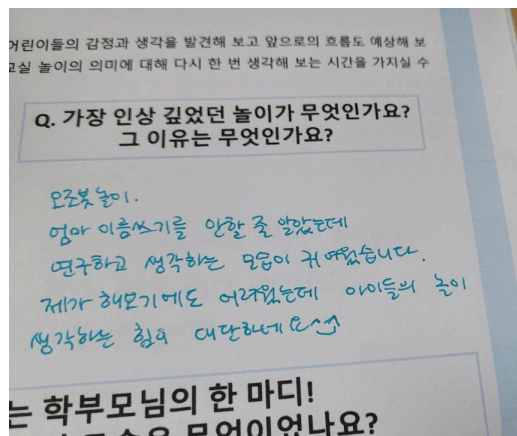 어린이들의 감정과 생각을 발견해 보고 앞으로의 흐름도 예상해 보
교실 놀이의 의미에 대해 다시 한 번 생각해 보는 시간을 가지실 수
Q. 가장 인상 깊었던 놀이가 무엇인가요?
그 이유는 무엇인가요?
오조봇놀이.
엄마 이름쓰기를 안할 줄 알았는데
연구하고 생각하는 모습이 귀여웠습니다.
제가 해보기에도 어려웠는데 아이들의 놀이
생각하는 힘이 대단하네요
는 학부모님의 한 마디!
무엇이었나요?